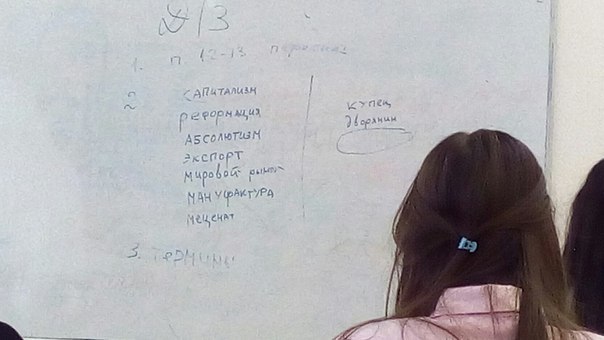 Д/З
1. п. 12-13 пересказ
2
КАПИТАЛИЗМ
РЕФОРМАЦИЯ
АБСОЛЮТИЗМ
ЭКСПОРТ
МИРОВОЙ РЫНОК
МАНУФАКТУРА
МЕЦЕНАТ
КУПЕЦ
ДВОРЯНИН
3. ТЕРМИНЫ